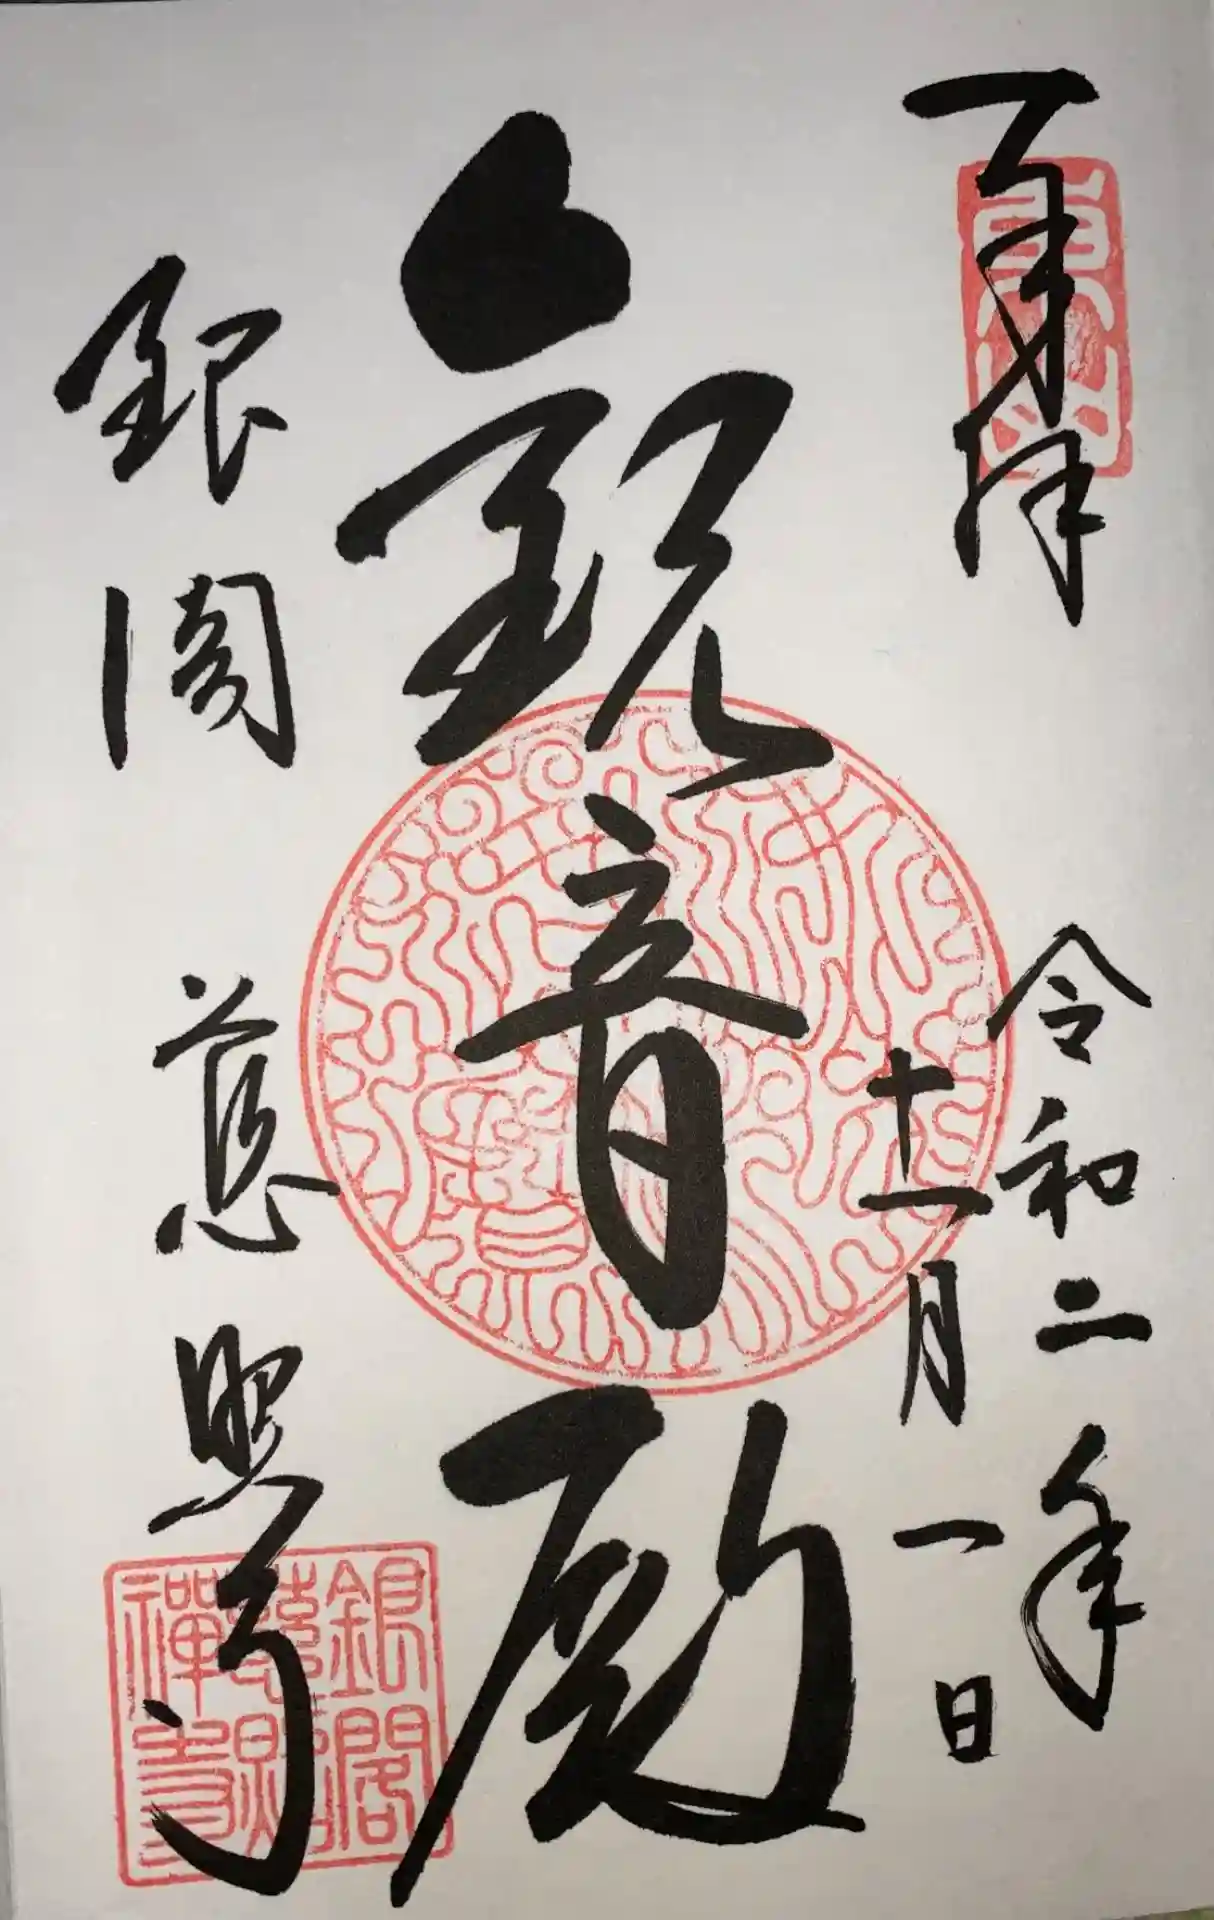 奉拝
東山
令和二年
十一月一日
観音殿
銀閣 慈照寺
銀閣
慈照
禅寺